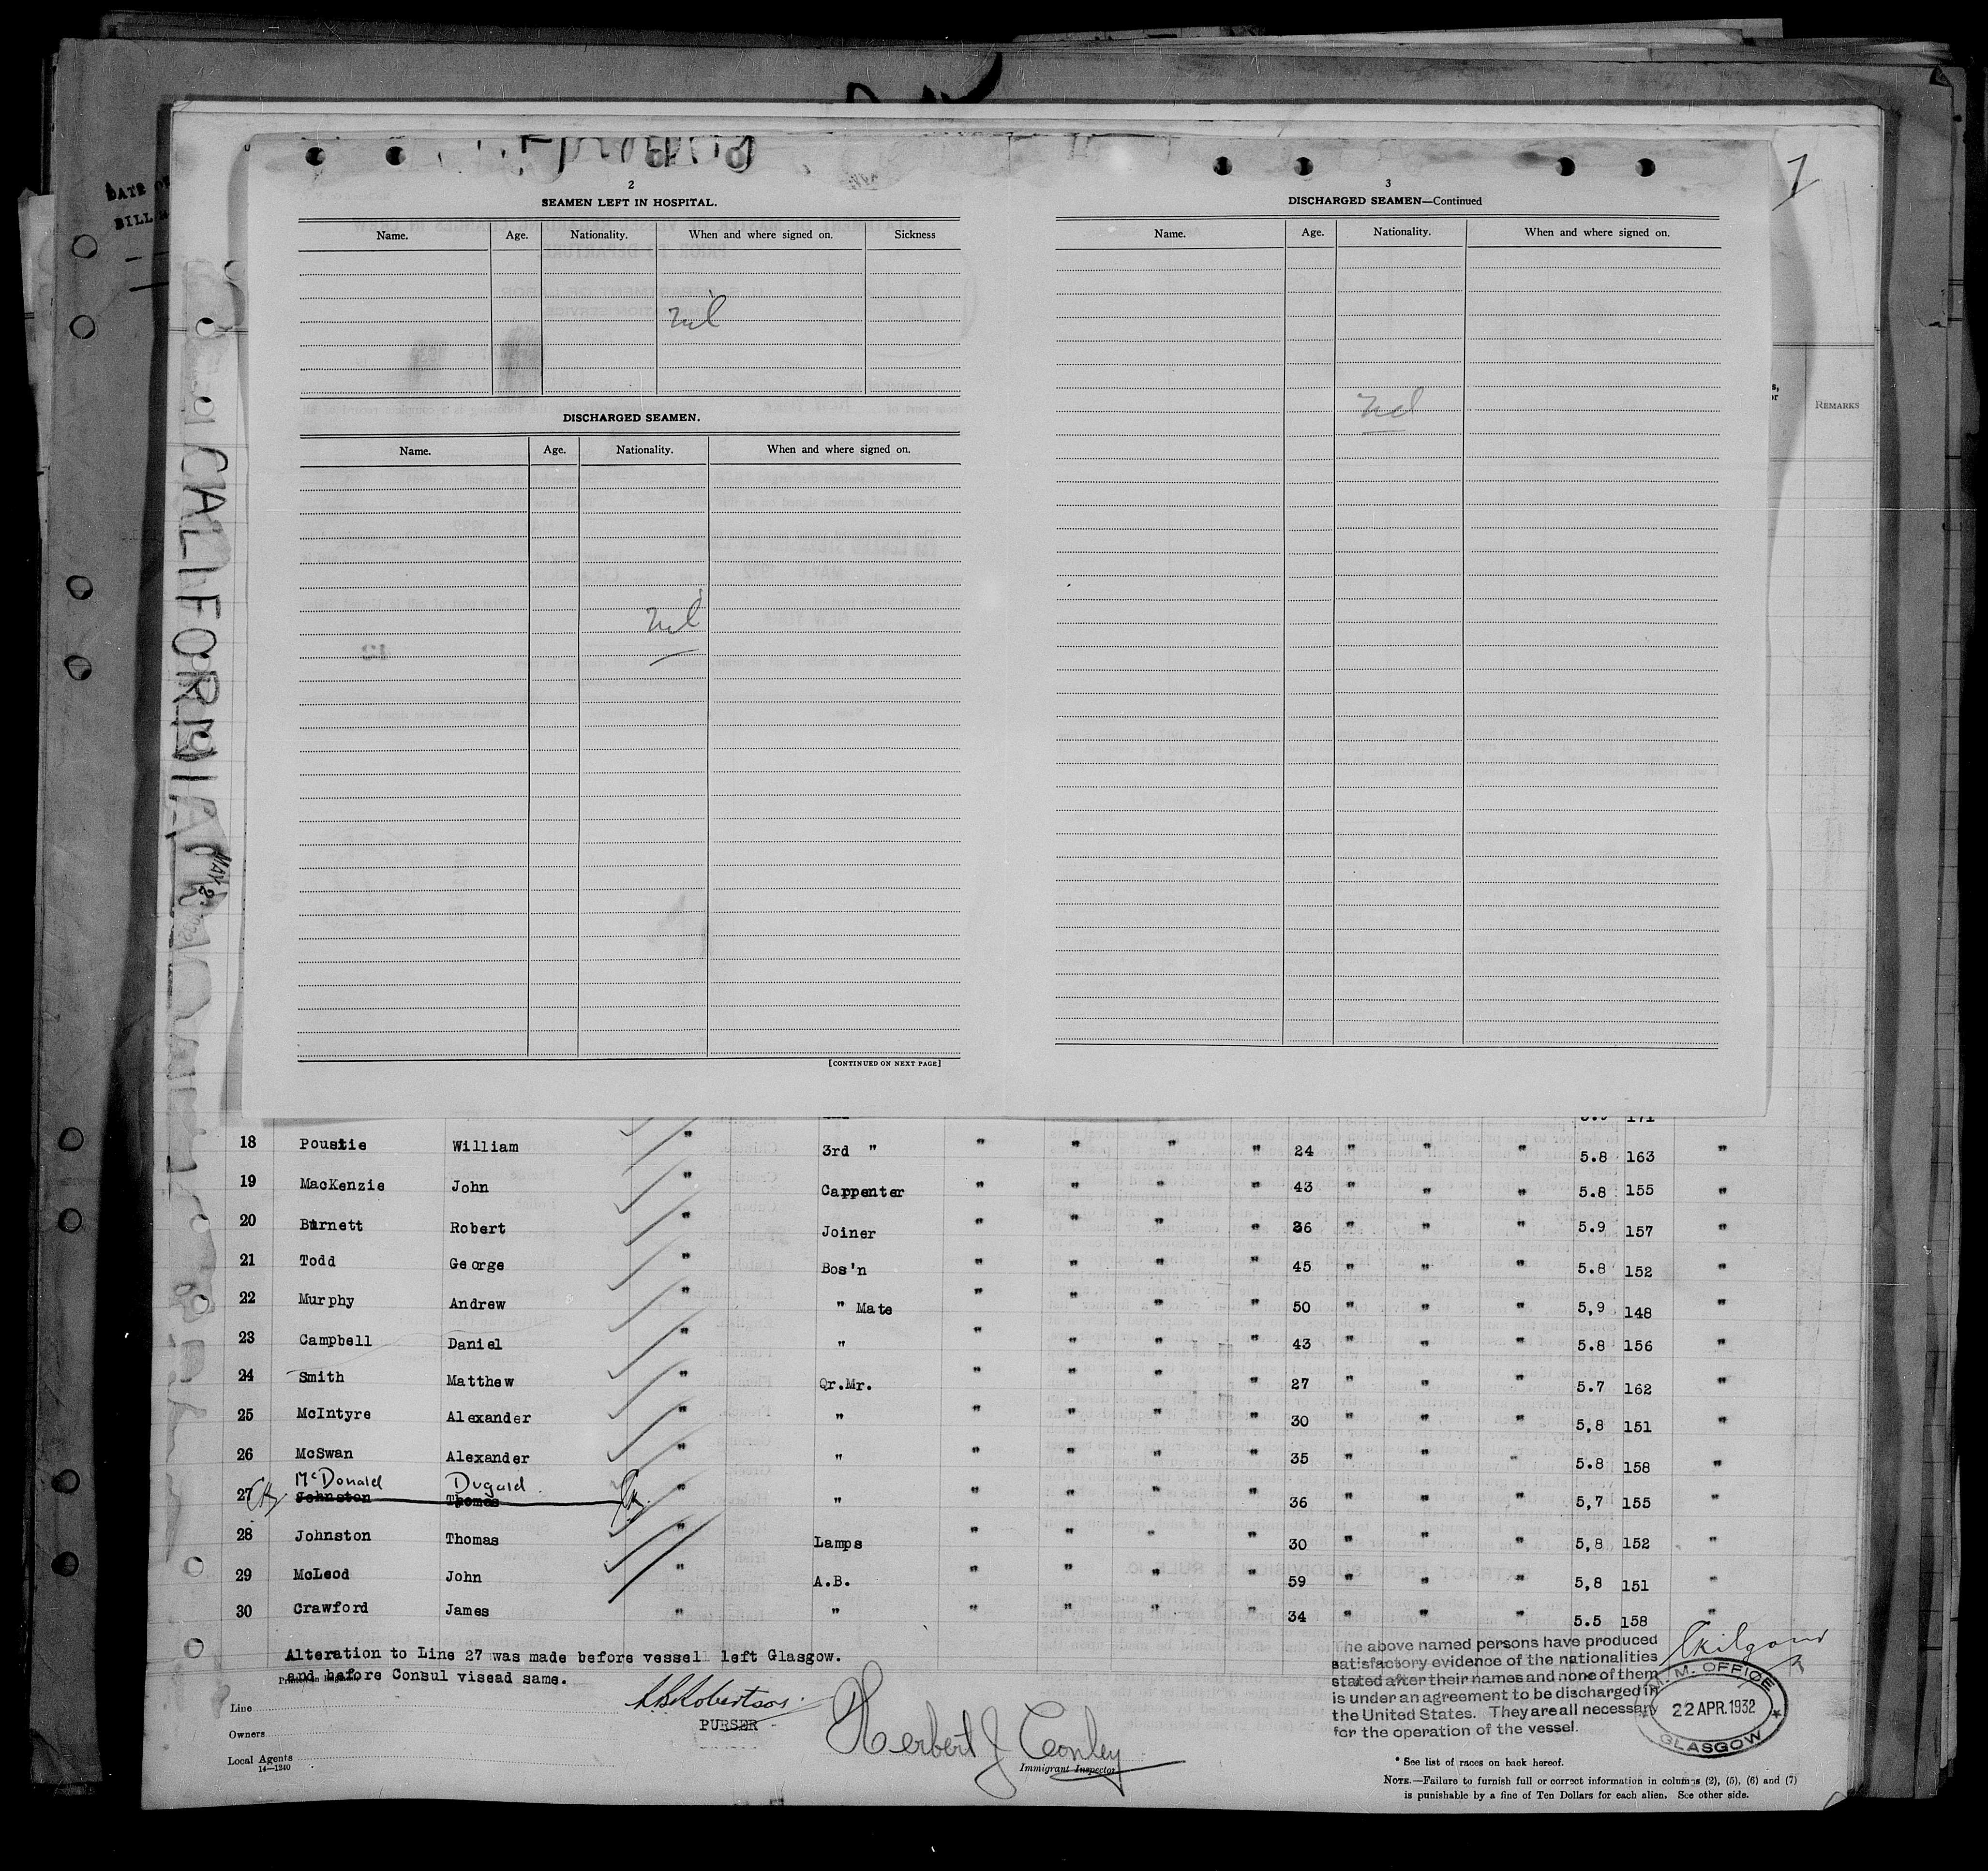 DATE OF
BILL
CALIFORNIA
MAY 2
1
2
SEAMEN LEFT IN HOSPITAL.
Name. Age. Nationality. When and where signed on. Sickness
nil
DISCHARGED SEAMEN.
Name. Age. Nationality. When and where signed on.
nil
[CONTINUED ON NEXT PAGE]
3
DISCHARGED SEAMEN—Continued
Name. Age. Nationality. When and where signed on.
nil
REMARKS
171
18 Poustie William " 3rd " " " " " 24 " " " 5.8 163 "
19 MacKenzie John " Carpenter " " " " 43 " " " 5.8 155 "
20 Burnett Robert " Joiner " " " " 36 " " " 5.9 157 "
21 Todd George " Bos'n " " " " 45 " " " 5.8 152 "
22 Murphy Andrew " " Mate " " " " 50 " " " 5,9 148 "
23 Campbell Daniel " " " " " " 43 " " " 5.8 156 "
24 Smith Matthew " Qr.Mr. " " " " 27 " " " 5.7 162 "
25 McIntyre Alexander " " " " " " 30 " " " 5,8 151 "
26 McSwan Alexander " " " " " " 35 " " " 5.8 158 "
McDonald Dugald
27 Johnston Thomas " " " " " " 36 " " " 5,7 155 "
28 Johnston Thomas " Lamps " " " " 30 " " " 5,8 152 "
29 McLeod John " A.B. " " " " 59 " " " 5,8 151 "
30 Crawford James " " " " " " 34 " " " 5.5 158 "
Alteration to Line 27 was made before vessel left Glasgow.
and before Consul visead same.
Line
Owners
Local Agents
14—1240
Robertson
PURSER
Herbert J Conley
Immigrant Inspector
The above named persons have produced
satisfactory evidence of the nationalities
stated after their names and none of them
is under an agreement to be discharged in
the United States. They are all necessary
for the operation of the vessel.
M.M. OFFICE
22 APR. 1932
GLASGOW
* See list of races on back hereof.
NOTE.—Failure to furnish full or correct information in columns (2), (5), (6) and (7)
is punishable by a fine of Ten Dollars for each alien. See other side.